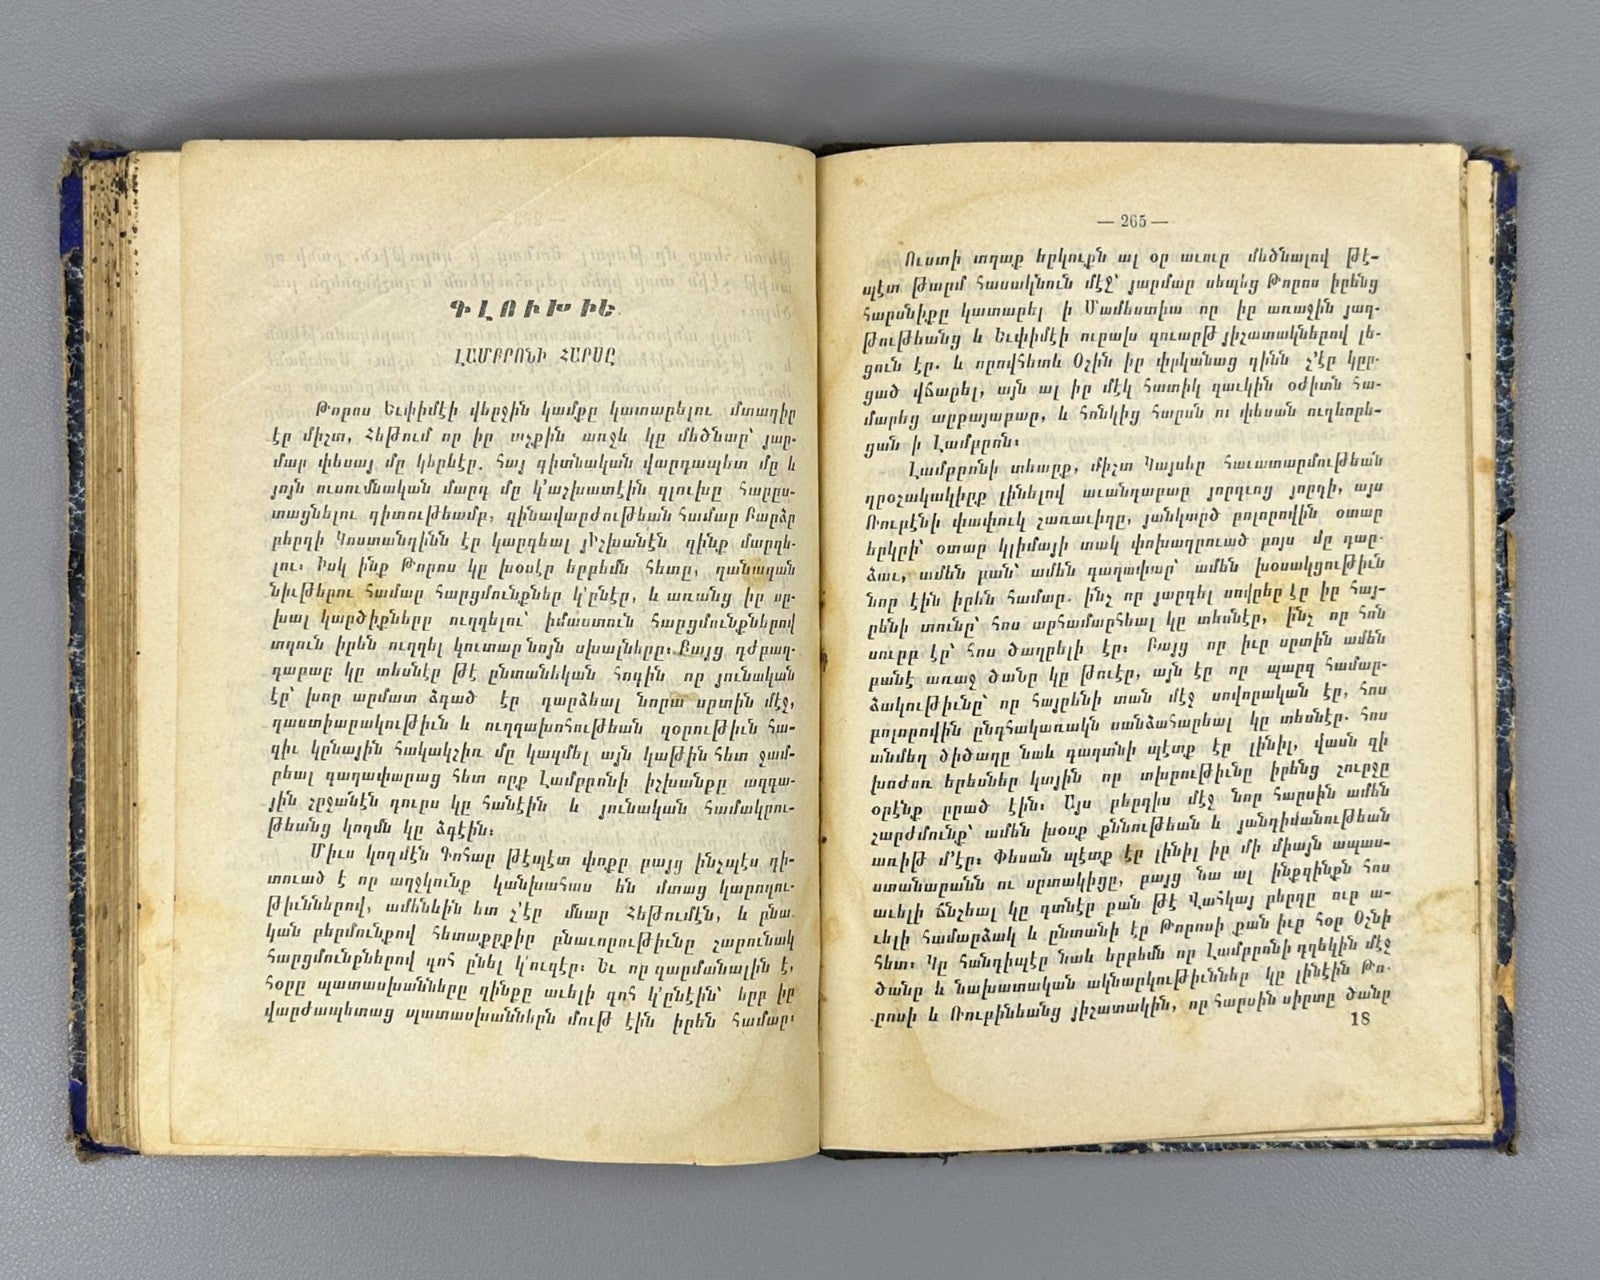 ԳԼՈՒԽ ԻԵ.
ԼԱՄԲՐՈՆԻ ՀԱՐՍԸ
Թորոս Եւփիմէի վերջին կամքը կատարելու մտադիր
էր միշտ, Հեթում որ իր աչքին առջև կը մեծնար՝ յար-
մար փեսայ մը կերևէր. հայ գիտնական վարդապետ մը և
յոյն ուսումնական մարդ մը կ՚աշխատէին գլուխը հարըս-
տացնելու գիտութեամբ, զինավարժութեան համար Բարձր
բերդի Կոստանդինն էր կարգեալ յԻշխանէն զինք մարզե-
լու։ Իսկ ինք Թորոս կը խօսէր երբեմն հետը, զանազան
նիւթերու համար հարցմունքներ կ՚ընէր, և առանց իր սը-
խալ կարծիքները ուղղելու՝ իմաստուն հարցմունքներով
տղուն իրեն ուղղել կուտար նոյն սխալները։ Բայց դժբաղ-
դաբար կը տեսնէր թէ ընտանեկան հոգին որ յունական
էր՝ խոր արմատ ձգած էր դարձեալ նորա սրտին մէջ,
դաստիարակութիւն և ուղղախոհութեան զօրութիւն հա-
զիւ կընային հակակշիռ մը կազմել այն կաթին հետ ջամ-
բեալ գաղափարաց հետ որք Լամբրոնի իշխանքը ազգա-
յին շրջանէն դուրս կը հանէին և յունական համակրու-
թեանց կողմն կը ձգէին։
Միւս կողմէն Գոհար թէպէտ փոքր բայց ինչպէս գի-
տուած է որ աղջկունք կանխահաս են մտաց կարողու-
թիւններով, ամենևին ետ չ՚էր մնար Հեթումէն, և բնա-
կան բերմունքով հետաքրքիր բնաւորութիւնը շարունակ
հարցմունքներով գոհ ընել կ՚ուզէր։ Եւ որ զարմանալին է,
հօրը պատասխանները զինքը աւելի գոհ կ՚ընէին՝ երբ իր
վարժապետաց պատասխաններն մութ էին իրեն համար։
— 265 —
Ուստի տղաք երկուքն ալ օր աւուր մեծնալով թէ-
պէտ թարմ հասակնուն մէջ՝ յարմար սեպեց Թորոս իրենց
հարսնիքը կատարել ի Մամեստիա որ իր առաջին յաղ-
թութեանց և Եւփիմէի ուրախ զուարթ յիշատակներով լե-
ցուն էր. և որովհետև Օշին իր փրկանաց գինն չ՚էր կըր-
ցած վճարել, այն ալ իր մէկ հատիկ զաւկին օժիտն հա-
մարեց արքայաբար, և հոնկից հարսն ու փեսան ուղևորե-
ցան ի Լամբրոն։
Լամբրոնի տեարք, միշտ Կայսեր հաւատարմութեան
դրօշակակիրք լինելով աւանդաբար յորդւոց յորդի, այս
Ռուբէնի փափուկ շառաւիղը, յանկարծ բոլորովին օտար
երկրի՝ օտար կլիմայի տակ փոխադրուած բոյս մը դար-
ձաւ, ամեն բան՝ ամեն գաղափար՝ ամեն խօսակցութիւն
նոր էին իրեն համար. ինչ որ յարգել սովրեր էր իր հայ-
րենի տունը՝ հոս արհամարհեալ կը տեսնէր, ինչ որ հոն
սուրբ էր՝ հոս ծաղրելի էր։ Բայց որ իւր սրտին ամեն
բանէ առաջ ծանր կը թուէր, այն էր որ պարզ համար-
ձակութիւնը՝ որ հայրենի տան մէջ սովորական էր, հոս
բոլորովին ընդհակառակն սանձահարեալ կը տեսնէր. հոս
անմեղ ծիծաղը նաև գաղտնի պէտք էր լինիլ, վասն զի
խոժոռ երեսներ կային որ տխրութիւնը իրենց շուրջը
օրէնք ըրած էին։ Այս բերդիս մէջ նոր հարսին ամեն
շարժմունք՝ ամեն խօսք քննութեան և յանդիմանութեան
առիթ մ՚էր։ Փեսան պէտք էր լինիլ իր մի միայն ապաս-
տանարանն ու սրտակիցը, բայց նա ալ ինքզինքն հոս
աւելի ճնշեալ կը գտնէր քան թէ Վահկայ բերդը ուր ա-
ւելի համարձակ և ընտանի էր Թորոսի քան իւր հօր Օշնի
հետ։ Կը հանդիպէր նաև երբեմն որ Լամբրոնի դղեկին մէջ
ծանր և նախատական ակնարկութիւններ կը լինէին Թո-
րոսի և Ռուբինեանց յիշատակին, որ հարսին սիրտը ծանր
18